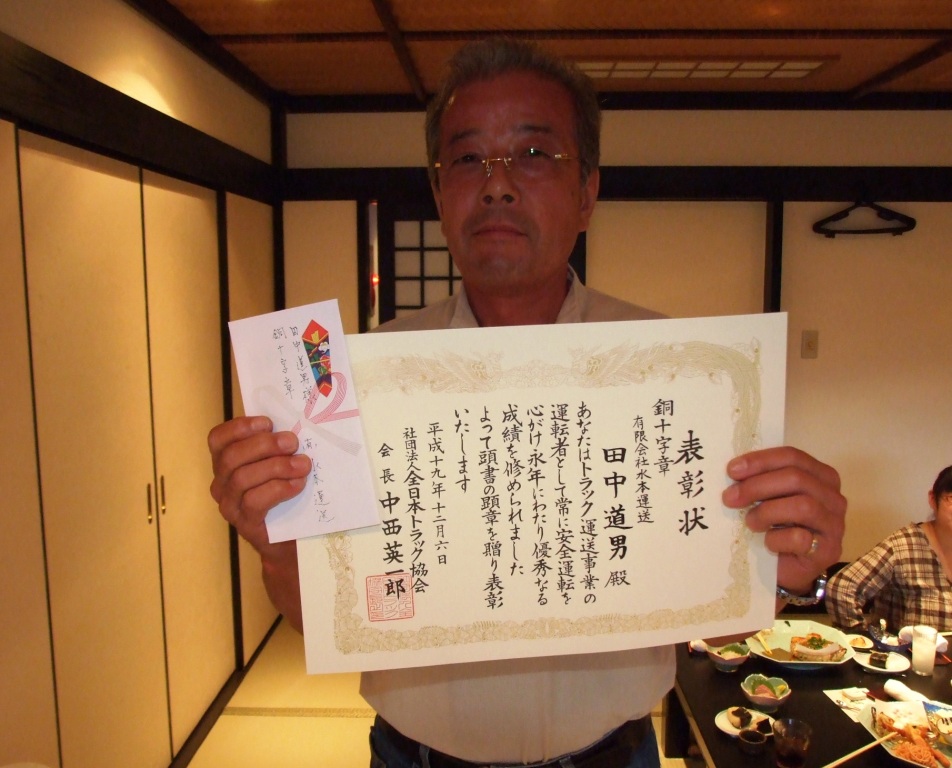 表彰状
銅十字章
有限会社水本運送
田中道男殿
あなたはトラック運送事業の
運転者として常に安全運転を
心がけ永年にわたり優秀なる
成績を修められました
よって頭書の顕章を贈り表彰
いたします
平成十九年十二月六日
社団法人全日本トラック協会
会長 中西英一郎
田中道男様
銅十字章